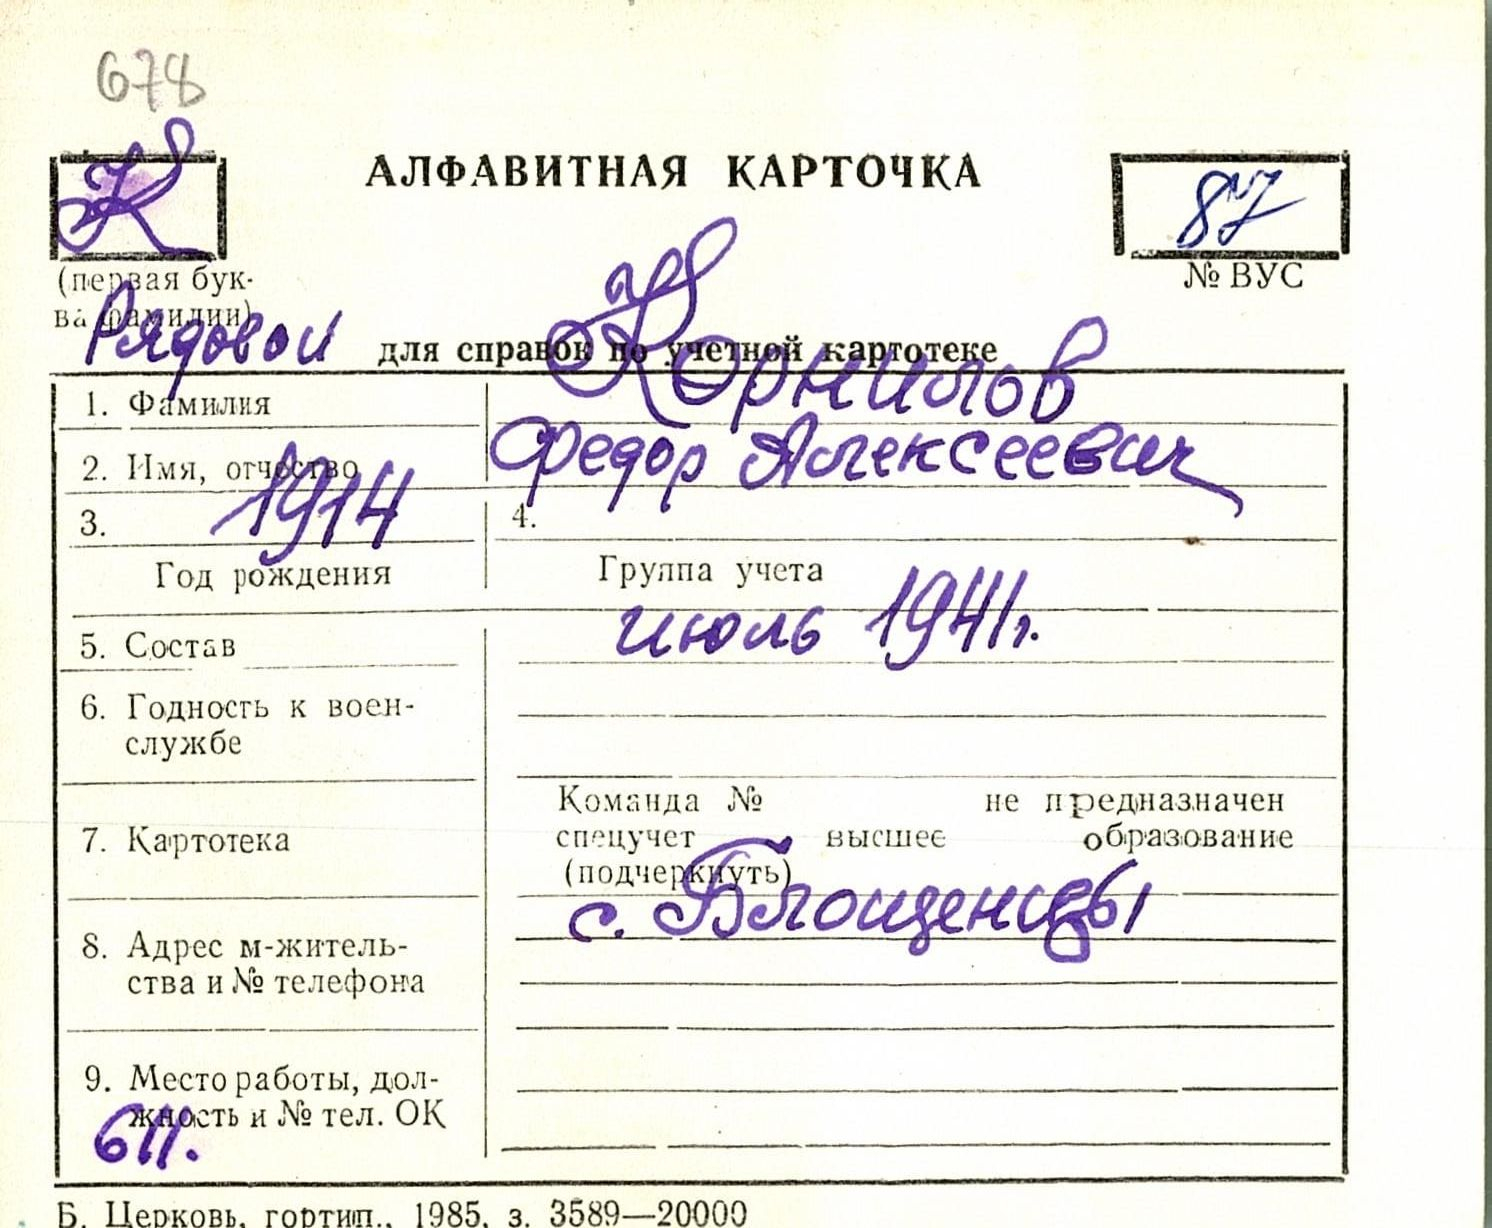 678
К
АЛФАВИТНАЯ КАРТОЧКА
87
(первая бук-
ва фамилии)
№ ВУС
Рядовой
для справок по учетной картотеке
1. Фамилия Корнилов
2. Имя, отчество Федор Алексеевич
3. 1914 4.
Год рождения Группа учета
июль 1941г.
5. Состав
6. Годность к воен-
службе
Команда № не предназначен
7. Картотека спецучет высшее образование
(подчеркнуть)
с. Блощенцы
8. Адрес м-житель-
ства и № телефона
9. Место работы, дол-
жность и № тел. ОК
611.
Б. Церковь, гортип., 1985, з. 3589—20000